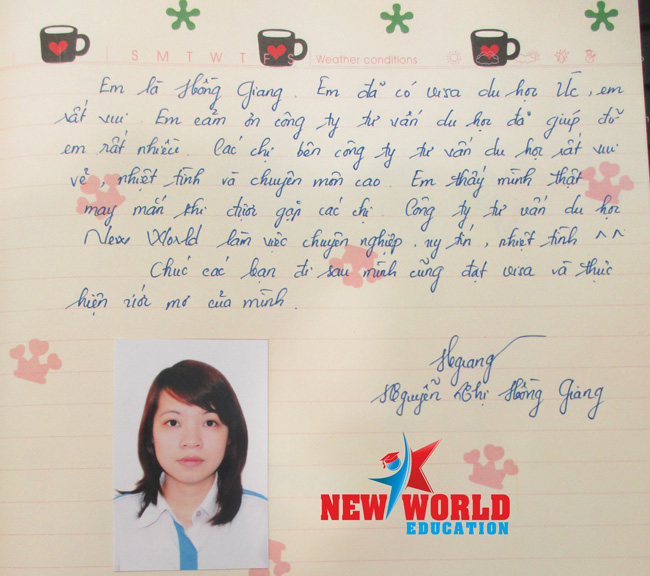 S M T W T F S Weather conditions
Em là Hồng Giang. Em đã có visa du học Úc, em
rất vui. Em cảm ơn công ty tư vấn du học đã giúp đỡ
em rất nhiều. Các chị bên công ty tư vấn du học rất vui
vẻ, nhiệt tình và chuyên môn cao. Em thấy mình thật
may mắn khi được gặp các chị. Công ty tư vấn du học
New World làm việc chuyên nghiệp, uy tín, nhiệt tình ^^
Chúc các bạn đi sau mình cũng đạt visa và thực
hiện ước mơ của mình.
Hgiang
Nguyễn Thị Hồng Giang
NEW WORLD
EDUCATION